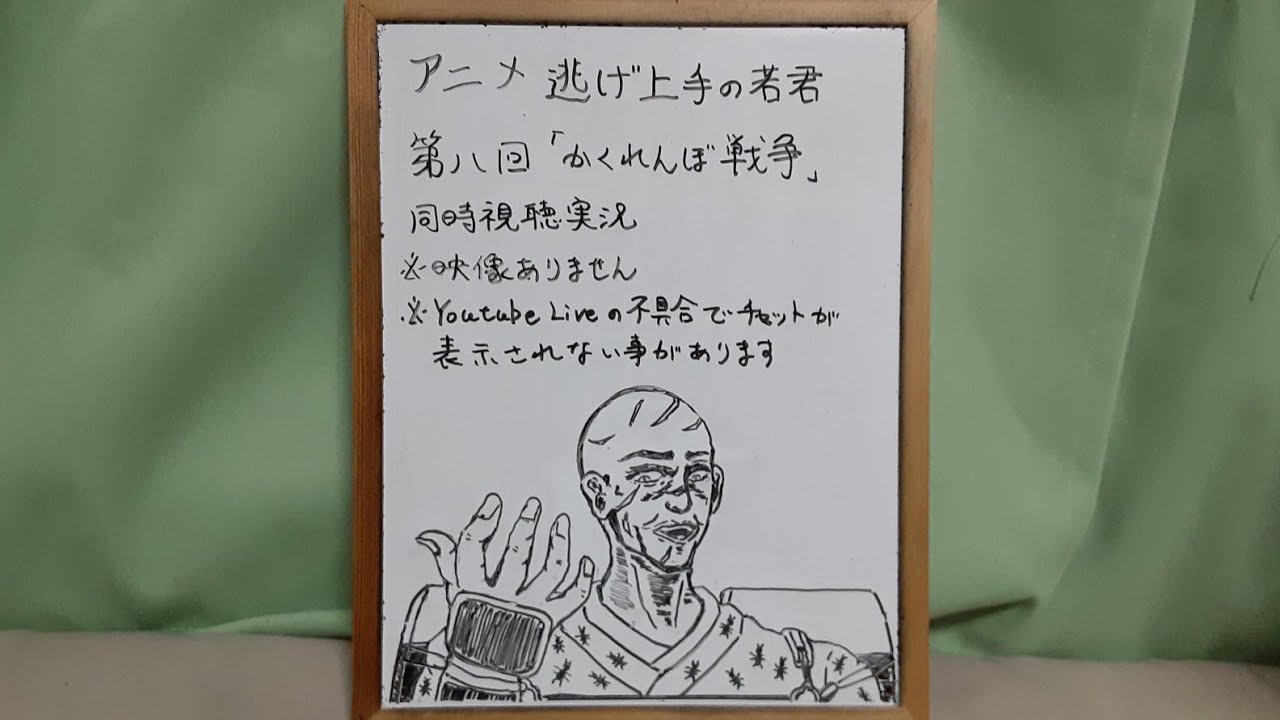 アニメ 逃げ上手の若君
第八回「かくれんぼ戦争」
同時視聴実況
※映像ありません
※Youtube Liveの不具合でチャットが
表示されない事があります